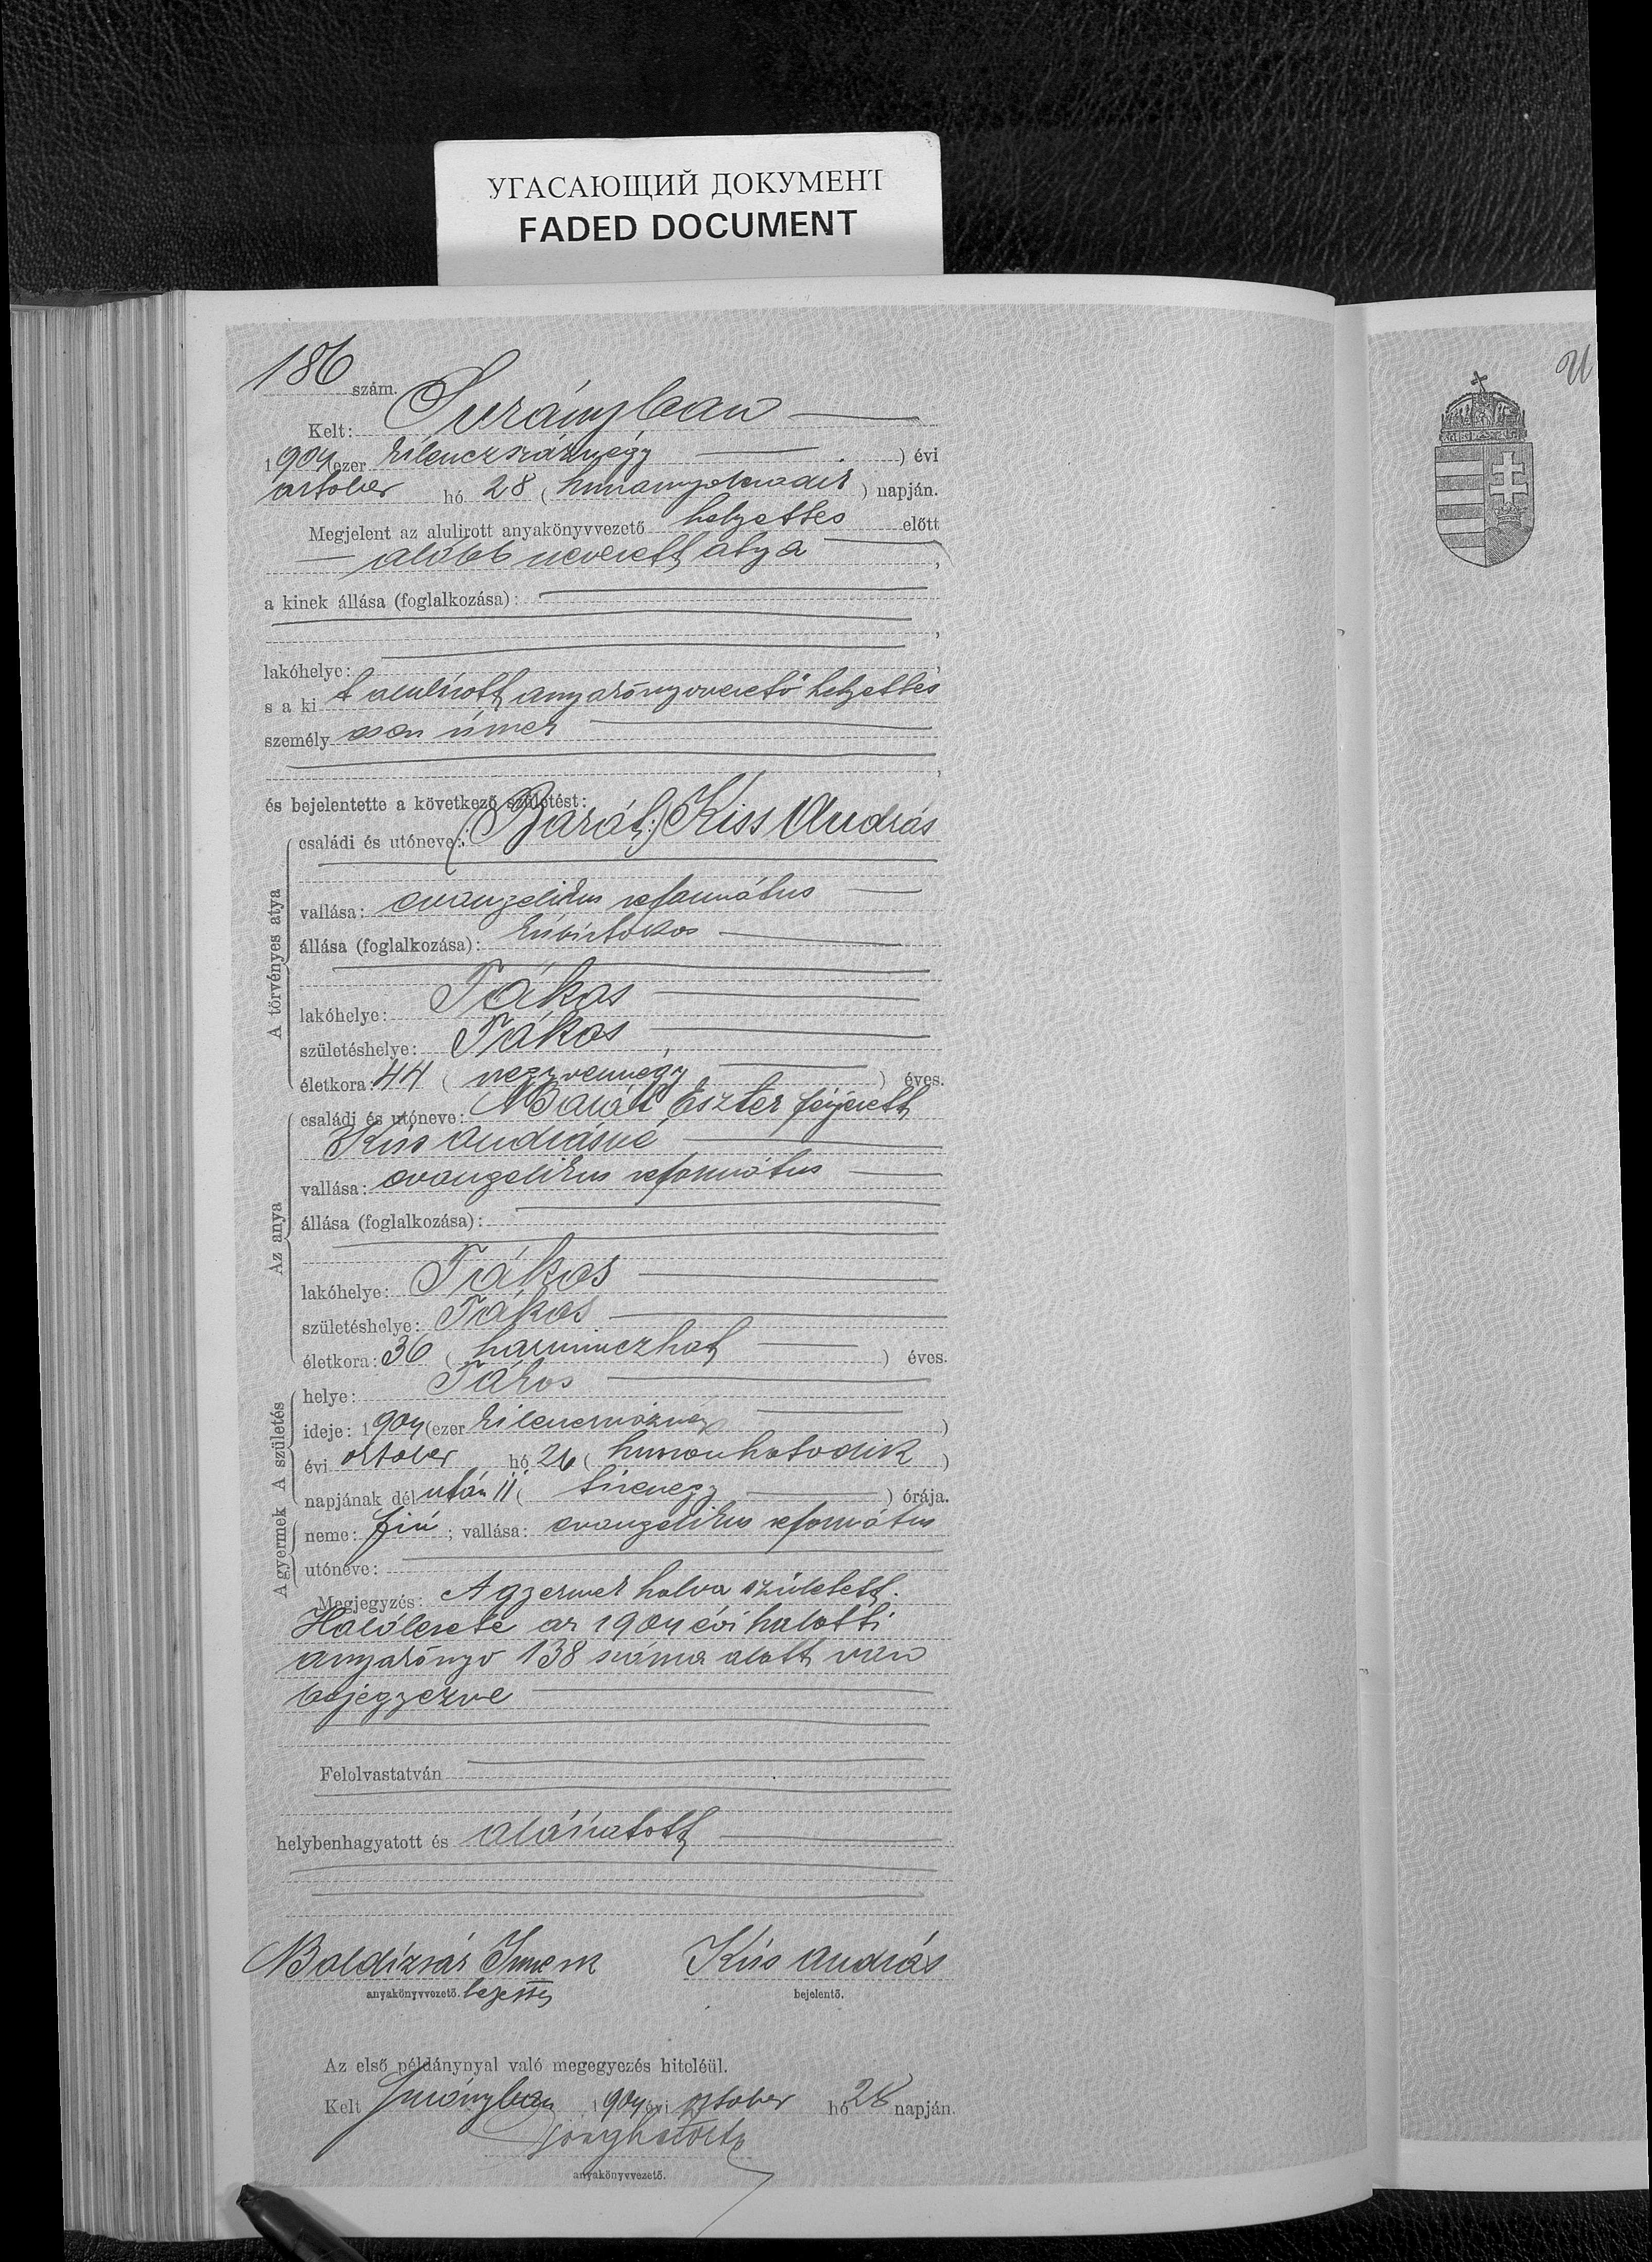 УГАСАЮЩИЙ ДОКУМЕНТ
FADED DOCUMENT
186 szám.
Kelt: Surányban
1904 (ezer kilenczszáznégy ) évi
october hó 28 ( huszonnyolczadik ) napján.
Megjelent az alulirott anyakönyvvezető helyettes előtt
alább nevezett atya ,
a kinek állása (foglalkozása):
,
lakóhelye: ,
s a ki t alulírott anyakönyvvezető helyettes
személy esen ismer
,
és bejelentette a következő születést:
A törvényes atya
családi és utóneve: (Barát:) Kiss András
vallása: evangelikus református
állása (foglalkozása): kisbirtokos
lakóhelye: Tákos
születéshelye: Tákos
életkora: 44 ( negyvennégy ) éves.
Az anya
családi és utóneve: Barát Eszter férjezett
Kiss Andrásné
vallása: evangelikus református
állása (foglalkozása):
lakóhelye: Tákos
születéshelye: Tákos
életkora: 36 ( harminczhat ) éves.
A születés
helye: Tákos
ideje: 1904 (ezer kilenczszáznégy )
évi october hó 26 ( huszonhatodik )
napjának dél után 11 ( tizenegy ) órája.
A gyermek
neme: fiú ; vallása: evangelikus református
utóneve:
Megjegyzés: A gyermek halva született.
Halálesete az 1904 évi halotti
anyakönyv 138 száma alatt van
bejegyezve
Felolvastatván
helybenhagyatott és aláíratott
Baldizsár Imre sk Kiss András
anyakönyvvezető. helyettes bejelentő.
Az első példánynyal való megegyezés hiteléül.
Kelt Surányban 1904 évi october hó 28 napján.
anyakönyvvezető.